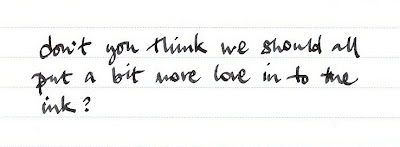 don't you think we should all
put a bit more love in to the
ink?